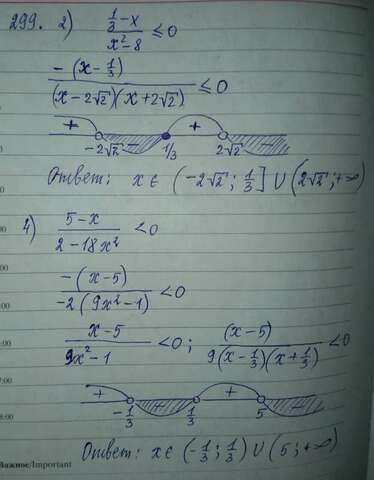 299. 2) (1/3 - x)/(x² - 8) ≤ 0
-(x - 1/3)/((x - 2√2)(x + 2√2)) ≤ 0
+ - + -
-2√2 1/3 2√2
Ответ: x ∈ (-2√2; 1/3] ∪ (2√2; +∞)
4) (5 - x)/(2 - 18x²) < 0
-(x - 5)/(-2(9x² - 1)) < 0
(x - 5)/(9x² - 1) < 0; (x - 5)/(9(x - 1/3)(x + 1/3)) < 0
+ - + -
-1/3 1/3 5
Ответ: x ∈ (-1/3; 1/3) ∪ (5; +∞)
Важное/Important